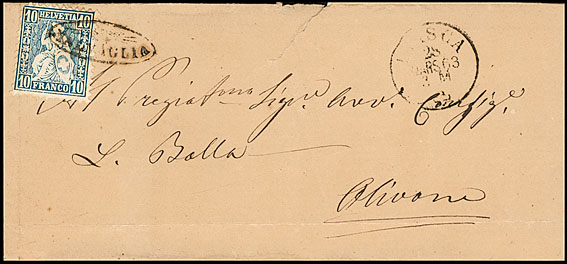 10 HELVETIA 10
10 FRANCO 10
IASCA
28
63
Al Pregiatmo Sigr. Avv. Consigre.
L. Bolla
Olivone